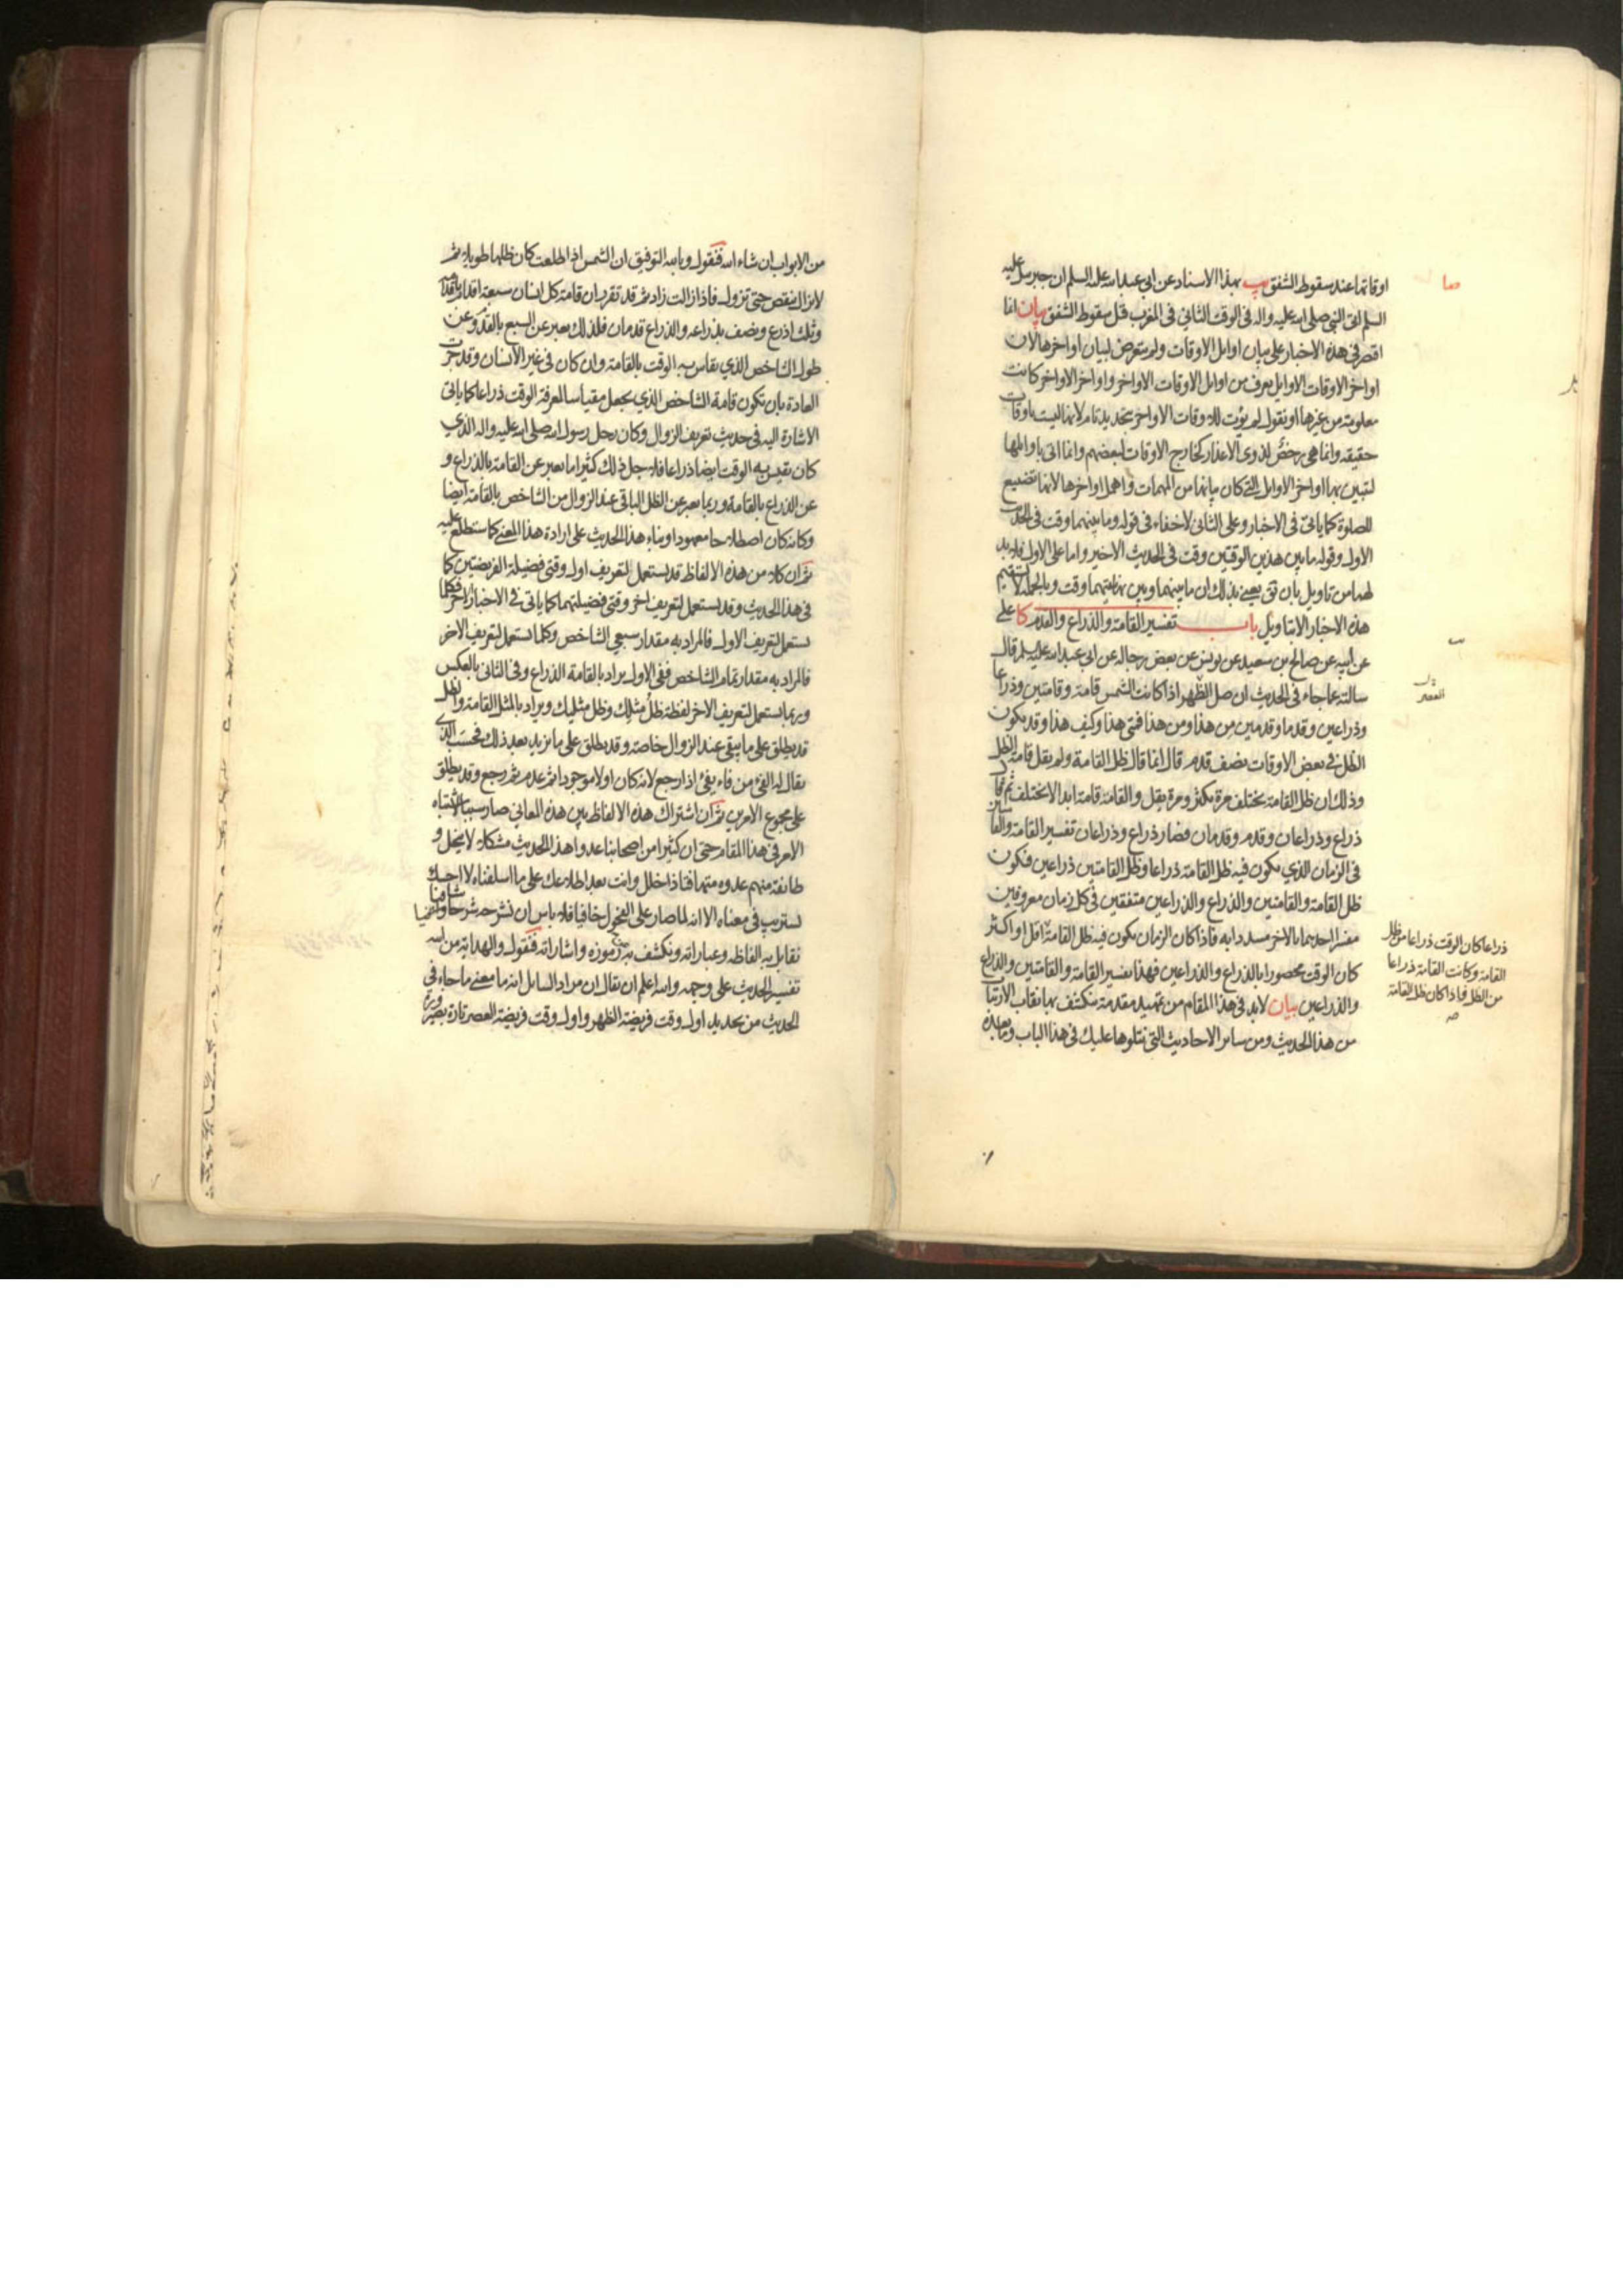 اوقاتها عند سقوط الشفق يب بهذا الاسناد عن ابي عبدالله عليه السلم ان جبرئيل عليه
السلم اتى النبي صلى الله عليه واله في الوقت الثاني في المغرب قبل سقوط الشفق بيان انما
اقتصر في هذه الاخبار على بيان اوايل الاوقات ولم يتعرض لبيان اواخرها لان
اواخر الاوقات الاوايل يعرف من اوايل الاوقات الاواخر واواخر الاواخر كانت
معلومة من غيرها او نقول لم يؤت للاوقات الاواخر بتحديد تام لانها ليست باوقات
حقيقة وانما هي رخص لذوي الاعذار كخارج الاوقات لبعضهم وانما اتى باوايلها
لتبين بها اواخر الاوايل التي كان بيانها من المهمات واهمل اواخرها لانها تضييع
للصلوة كما ياتي في الاخبار وعلى الثاني لاخفاء في قوله وما بينهما وقت في الحديث
الاول وقوله ما بين هذين الوقتين وقت في الحديث الاخير واما على الاول فلابد
لهما من تاويل بان نق يعني بذلك ان ما بينهما وبين نهايتيهما وقت وبالجملة لا تستقيم
هذه الاخبار الا بتاويل باب تفسير القامة والذراع والقدم كا علي
عن ابيه عن صالح بن سعيد عن يونس عن بعض رجاله عن ابي عبدالله عليه السلم قال
سالته عما جاء في الحديث ان صل الظهر اذا كانت الشمس قامة وقامتين وذراعا
وذراعين وقدما وقدمين من هذا ومن هذا فمتى هذا وكيف هذا وقد يكون
الظل في بعض الاوقات نصف قدم قال انما قال ظل القامة ولم يقل قامة الظل
وذلك ان ظل القامة يختلف مرة يكثر ومرة يقل والقامة قامة ابدا لا يختلف ثم قال
ذراع وذراعان وقدم وقدمان فصار ذراع وذراعان تفسير القامة والقامتين
في الزمان الذي يكون فيه ظل القامة ذراعا وظل القامتين ذراعين فيكون
ظل القامة والقامتين والذراع والذراعين متفقين في كل زمان معروفين
مفسرا احدهما بالاخر مسددا به فاذا كان الزمان يكون فيه ظل القامة اقل او اكثر
كان الوقت محصورا بالذراع والذراعين فهذا تفسير القامة والقامتين والذراع
والذراعين بيان لابد في هذا المقام من تمهيد مقدمة ينكشف بها نقاب الارتياب
من هذا الحديث ومن ساير الاحاديث التي نتلوها عليك في هذا الباب وما بعده
صا
العصر
ذراعا كان الوقت ذراعا من ظل
القامة وكانت القامة ذراعا
من الظل فاذا كان ظل القامة
من الابواب ان شاء الله فنقول وبالله التوفيق ان الشمس اذا طلعت كان ظلها طويلا ثم
لايزال ينقص حتى تزول فاذا زالت زاد ثم قد تقرر ان قامة كل انسان سبعة اقدام باقدامه
وثلث اذرع ونصف بذراعه والذراع قدمان فلذلك يعبر عن السبع بالقدم وعن
طول الشاخص الذي يقاس به الوقت بالقامة وان كان في غير الانسان وقد جرت
العادة بان تكون قامة الشاخص الذي يجعل مقياسا لمعرفة الوقت ذراعا كما ياتي
الاشارة اليه في حديث تعريف الزوال وكان رحل رسول الله صلى الله عليه واله الذي
كان يقيس به الوقت ايضا ذراعا فلاجل ذلك كثيرا ما يعبر عن القامة بالذراع و
عن الذراع بالقامة وربما يعبر عن الظل الباقي عند الزوال من الشاخص بالقامة ايضا
وكانه كان اصطلاحا معهودا وبناء هذا الحديث على ارادة هذا المعنى كما ستطلع عليه
ثم ان كلا من هذه الالفاظ قد يستعمل لتعريف اول وقتي فضيلة الفريضتين كما
في هذا الحديث وقد يستعمل لتعريف اخر وقتي فضيلتهما كما ياتي في الاخبار الاخر فكلما
يستعمل لتعريف الاول فالمراد به مقدار سبعي الشاخص وكلما يستعمل لتعريف الاخر
فالمراد به مقدار تمام الشاخص ففي الاول يراد بالقامة الذراع وفي الثاني بالعكس
وربما يستعمل لتعريف الاخر لفظة ظل مثلك وظل مثليك ويراد بالمثل القامة والظل
قد يطلق على ما يبقى عند الزوال خاصة وقد يطلق على ما يزيد بعد ذلك فحسب الذي
يقال له الفيء من فاء يفيء اذا رجع لانه كان اولا موجودا ثم عدم ثم رجع وقد يطلق
على مجموع الامرين ثم ان اشتراك هذه الالفاظ بين هذه المعاني صار سببا لاشتباه
الامر في هذا المقام حتى ان كثيرا من اصحابنا عدوا هذا الحديث مشكلا لا ينحل و
طائفة منهم عدوه متهافتا ذا خلل وانت بعد اطلاعك على ما اسلفناه لا احسبك
تستريب في معناه الا انه لما صار على الفحول خافيا فلا باس ان نشرحه شرحا شافيا
نقابل به الفاظه وعباراته ونكشف به عن رموزه واشاراته فنقول والهداية من الله
تفسير الحديث على وجهه والله اعلم ان يقال ان مراد السائل انه ما معنى ما جاء في
الحديث من تحديد اول وقت فريضة الظهر واول وقت فريضة العصر تارة بصيرورة